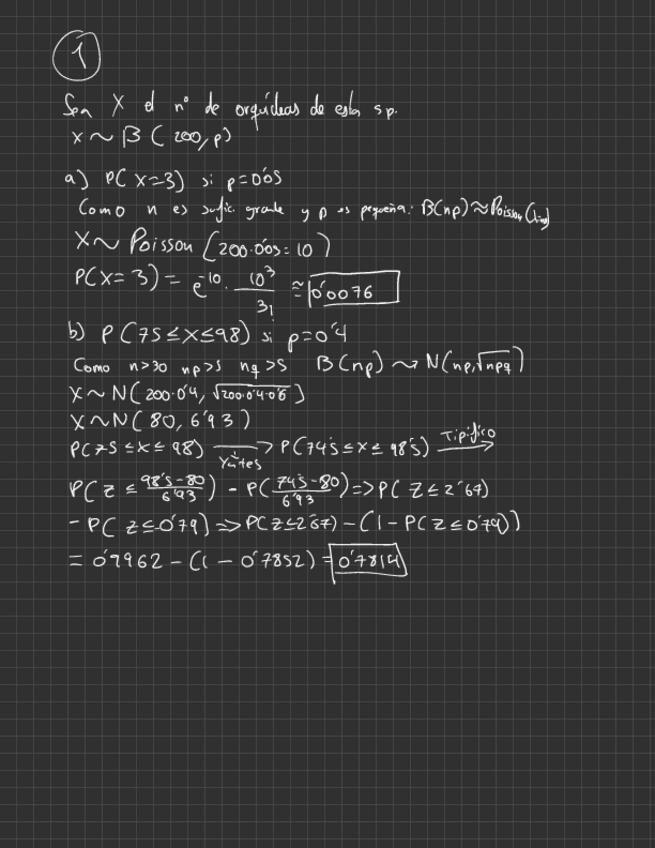 1
Sea X el nº de orquídeas de esta sp.
X ~ B ( 200, p)
a) P( X=3) si p=0'05
Como n es sufic. grande y p es pequeña: B(np) ≈ Poisson (λ=np)
X ~ Poisson (200·0'05 = 10 )
P(X= 3) = e^-10 · 10^3 / 3! ≅ 0'0076
b) P ( 75 ≤ X ≤ 98) si p=0'4
Como n>30 np>5 nq>5 B(np) ~> N(np,√npq)
X ~ N( 200·0'4, √200·0'4·0'6 )
X ~ N( 80, 6'93)
P(75 ≤ X ≤ 98) → Yates P(74'5 ≤ X ≤ 98'5) Tipifico →
P( Z ≤ 98'5-80 / 6'93 ) - P( 74'5-80 / 6'93 ) => P( Z ≤ 2'67)
- P( Z ≤ 0'79) => P( Z ≤ 2'67) - (1 - P( Z ≤ 0'79))
= 0'9962 - (1 - 0'7852) = 0'7814